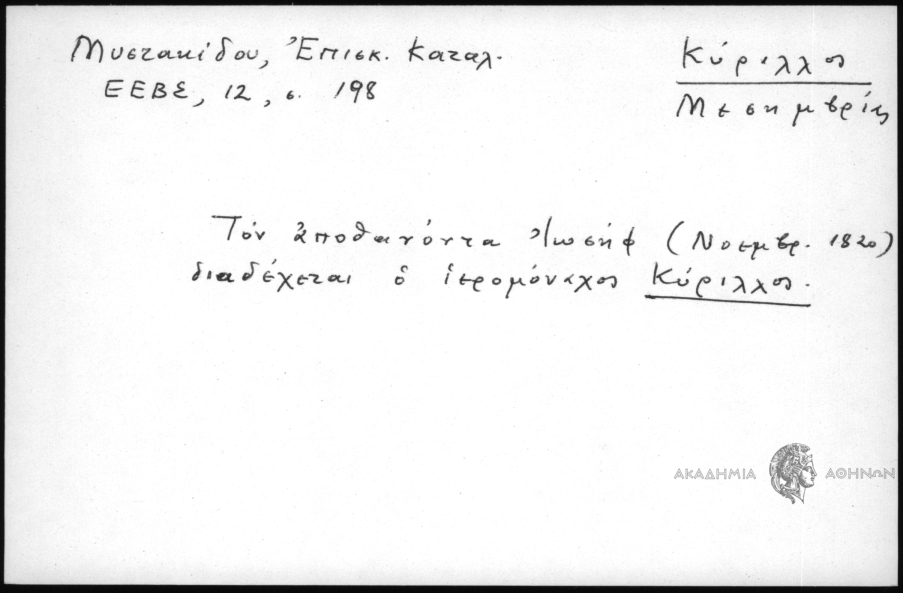 Μυστακίδου, Ἐπισκ. Καταλ.
ΕΕΒΣ, 12, σ. 198
Κύριλλος
Μεσημβρίας
Τόν ἀποθανόντα Ἰωσήφ (Νοεμβρ. 1820)
διαδέχεται ὁ ἱερομόναχος Κύριλλος.
ΑΚΑΔΗΜΙΑ ΑΘΗΝΩΝ